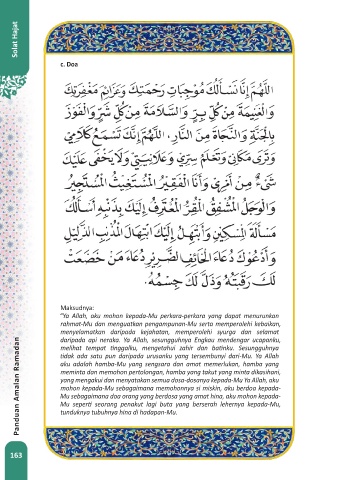 Solat Hajat
c. Doa
اللَّهُمَّ إِنَّا نَسْأَلُكَ مُوْجِبَاتِ رَحْمَتِكَ وَعَزَائِمَ مَغْفِرَتِكَ
وَالْغَنِيمَةَ مِنْ كُلِّ بِرٍّ وَالسَّلَامَةَ مِنْ كُلِّ شَرٍّ وَالْفَوْزَ
بِالْجَنَّةِ وَالنَّجَاةَ مِنَ النَّارِ. اللَّهُمَّ إِنَّكَ تَسْمَعُ كَلَامِيْ
وَتَرَى مَكَانِيْ وَتَعْلَمُ سِرِّيْ وَعَلَانِيَتِيْ وَلَا يَخْفَى عَلَيْكَ
شَيْءٌ مِنْ أَمْرِيْ وَأَنَا الْفَقِيْرُ الْمُسْتَغِيْثُ الْمُسْتَجِيْرُ
وَالْوَجَلُ الْمُشْفِقُ الْمُقِرُّ الْمُعْتَرِفُ إِلَيْكَ بِذَنْبِهِ أَسْأَلُكَ
مَسْأَلَةَ الْمِسْكِيْنِ وَأَبْتَهِلُ إِلَيْكَ ابْتِهَالَ الْمُذْنِبِ الذَّلِيْلِ
وَأَدْعُوْكَ دُعَاءَ الْخَائِفِ الضَّرِيْرِ دُعَاءَ مَنْ خَضَعَتْ
لَكَ رَقَبَتُهُ وَذَلَّ لَكَ جِسْمُهُ.
Maksudnya:
"Ya Allah, aku mohon kepada-Mu perkara-perkara yang dapat menurunkan
rahmat-Mu dan menguatkan pengampunan-Mu serta memperolehi kebaikan,
menyelamatkan daripada kejahatan, memperolehi syurga dan selamat
daripada api neraka. Ya Allah, sesungguhnya Engkau mendengar ucapanku,
melihat tempat tinggalku, mengetahui zahir dan batinku. Sesungguhnya
tidak ada satu pun daripada urusanku yang tersembunyi dari-Mu. Ya Allah
aku adalah hamba-Mu yang sengsara dan amat memerlukan, hamba yang
meminta dan memohon pertolongan, hamba yang takut yang minta dikasihani,
yang mengakui dan menyatakan semua dosa-dosanya kepada-Mu Ya Allah, aku
mohon kepada-Mu sebagaimana memohonnya si miskin, aku berdoa kepada-
Mu sebagaimana doa orang yang berdosa yang amat hina, aku mohon kepada-
Mu seperti seorang penakut lagi buta yang berserah lehernya kepada-Mu,
tunduknya tubuhnya hina di hadapan-Mu.
Panduan Amalan Ramadan
163